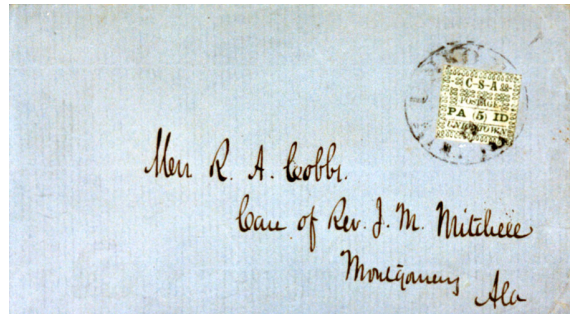 C·S·A
POSTAGE
PA (5) ID
UNIONTOWN
R. A. Cobbs.
Care of Rev. J. M. Mitchell
Montgomery
Ala